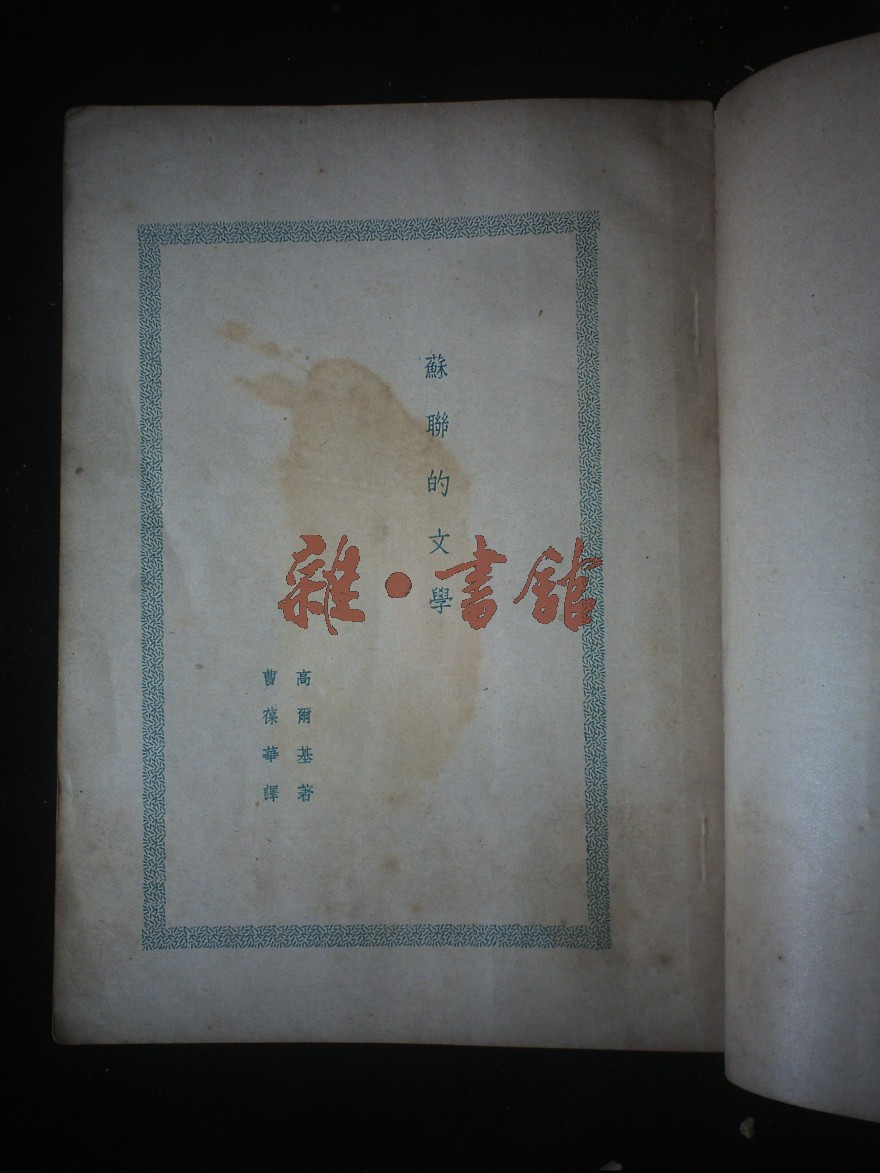 蘇聯的文學
高爾基著
曹葆華譯
雜·書館